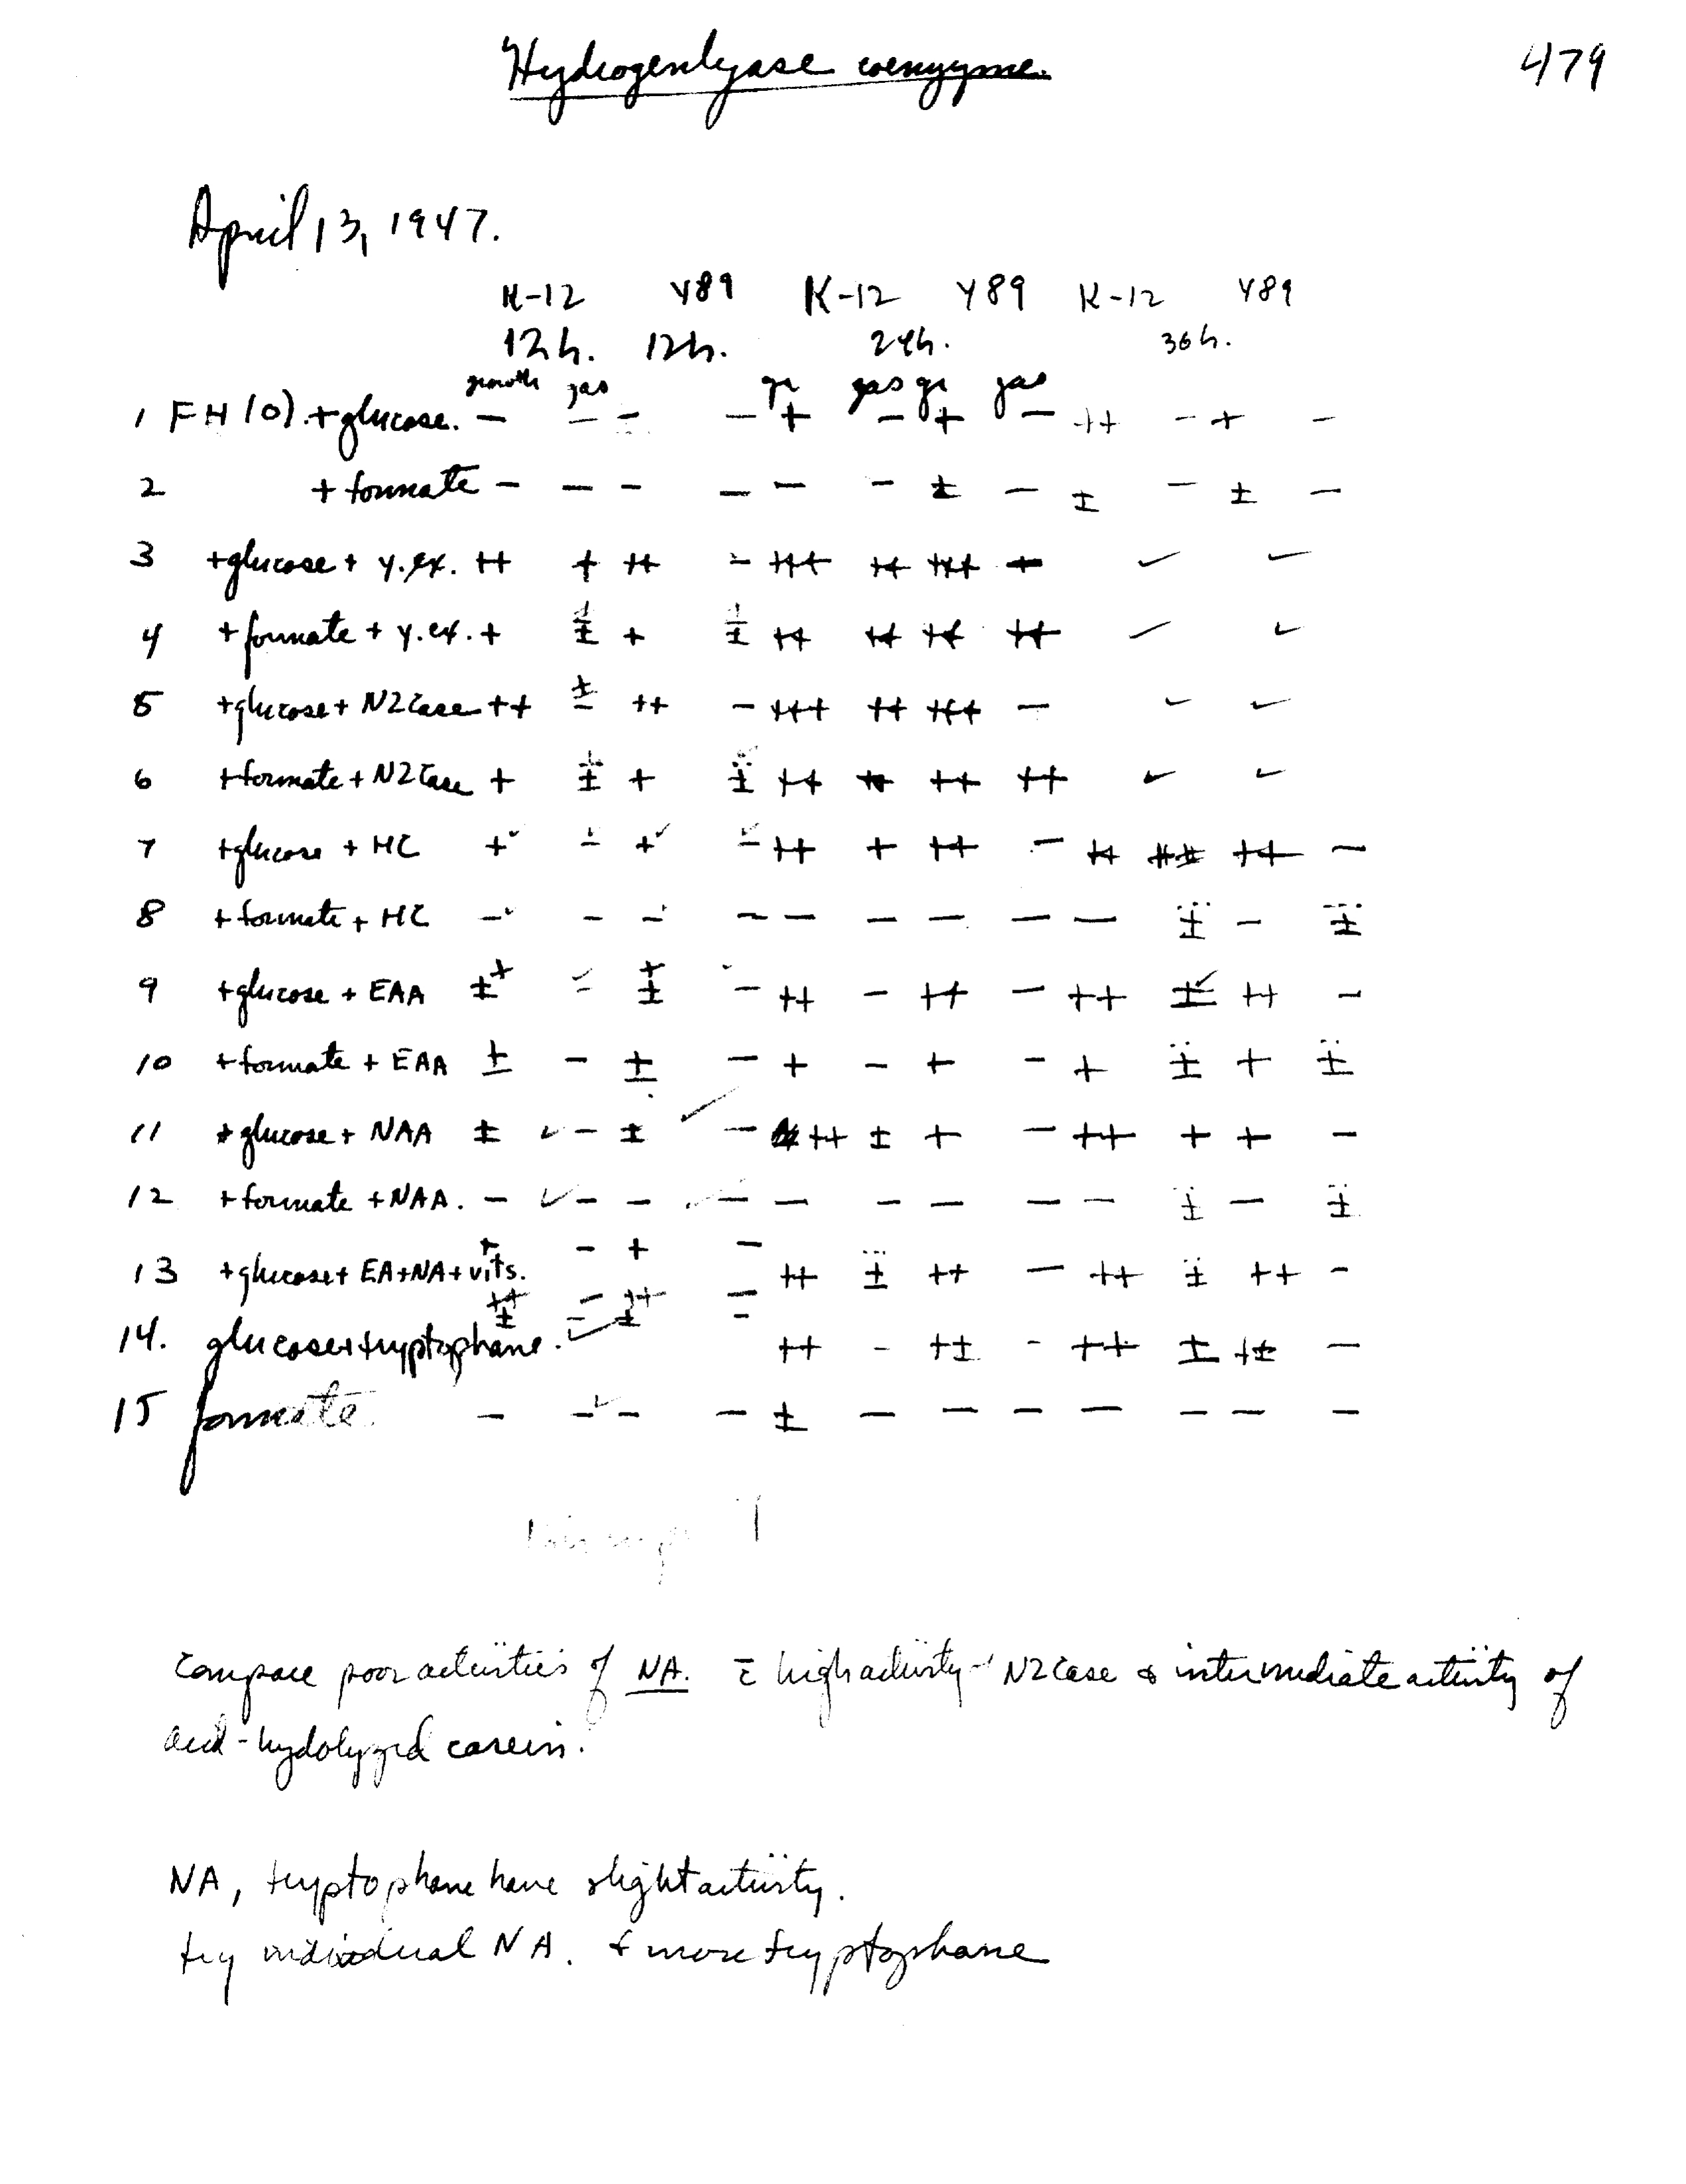 Hydrogenlyase coenzyme. 479
April 13, 1947.
K-12 Y89 K-12 Y89 K-12 Y89
12h. 12h. 24h. 36h.
growth gas gr gas gr gas
1 FH(0).+glucose. − − − − + − + − ++ − + −
2 + formate − − − − − − ± − ± − ± −
3 +glucose + y.ex. ++ + ++ − +++ ++ +++ + ✓ ✓
4 + formate + y.ex. + ± + ± ++ ++ ++ ++ ✓ ✓
5 +glucose + N2Case ++ ± ++ − +++ ++ +++ − ✓ ✓
6 +formate + N2Case + ± + ± ++ ++ ++ ✓ ✓
7 +glucose + HC + ± + − ++ + ++ − ++ ++ −
8 + formate + HC − − − − − − − − − ± − ±
9 +glucose + EAA ± + − ± + − ++ − ++ − ++ ± ++ −
10 + formate + EAA ± − ± − + − + − + ± + ±
11 + glucose + NAA ± ✓ − ± − ++ ± + − ++ + + −
12 + formate + NAA. − ✓ − − − − − − − − ± − ±
13 +glucose+ EA+NA+vits. + − + − ++ ± ++ − ++ ± ++ −
14. glucose+tryptophane. ++ − +± − ++ ± +± −
15 formate − − − − ± − − − − − − −
Compare poor activities of NA. c̄ high activity N2Case & intermediate activity of
acid-hydolyzed casein.
NA, tryptophane have slight activity.
try individual NA. & more tryptophane